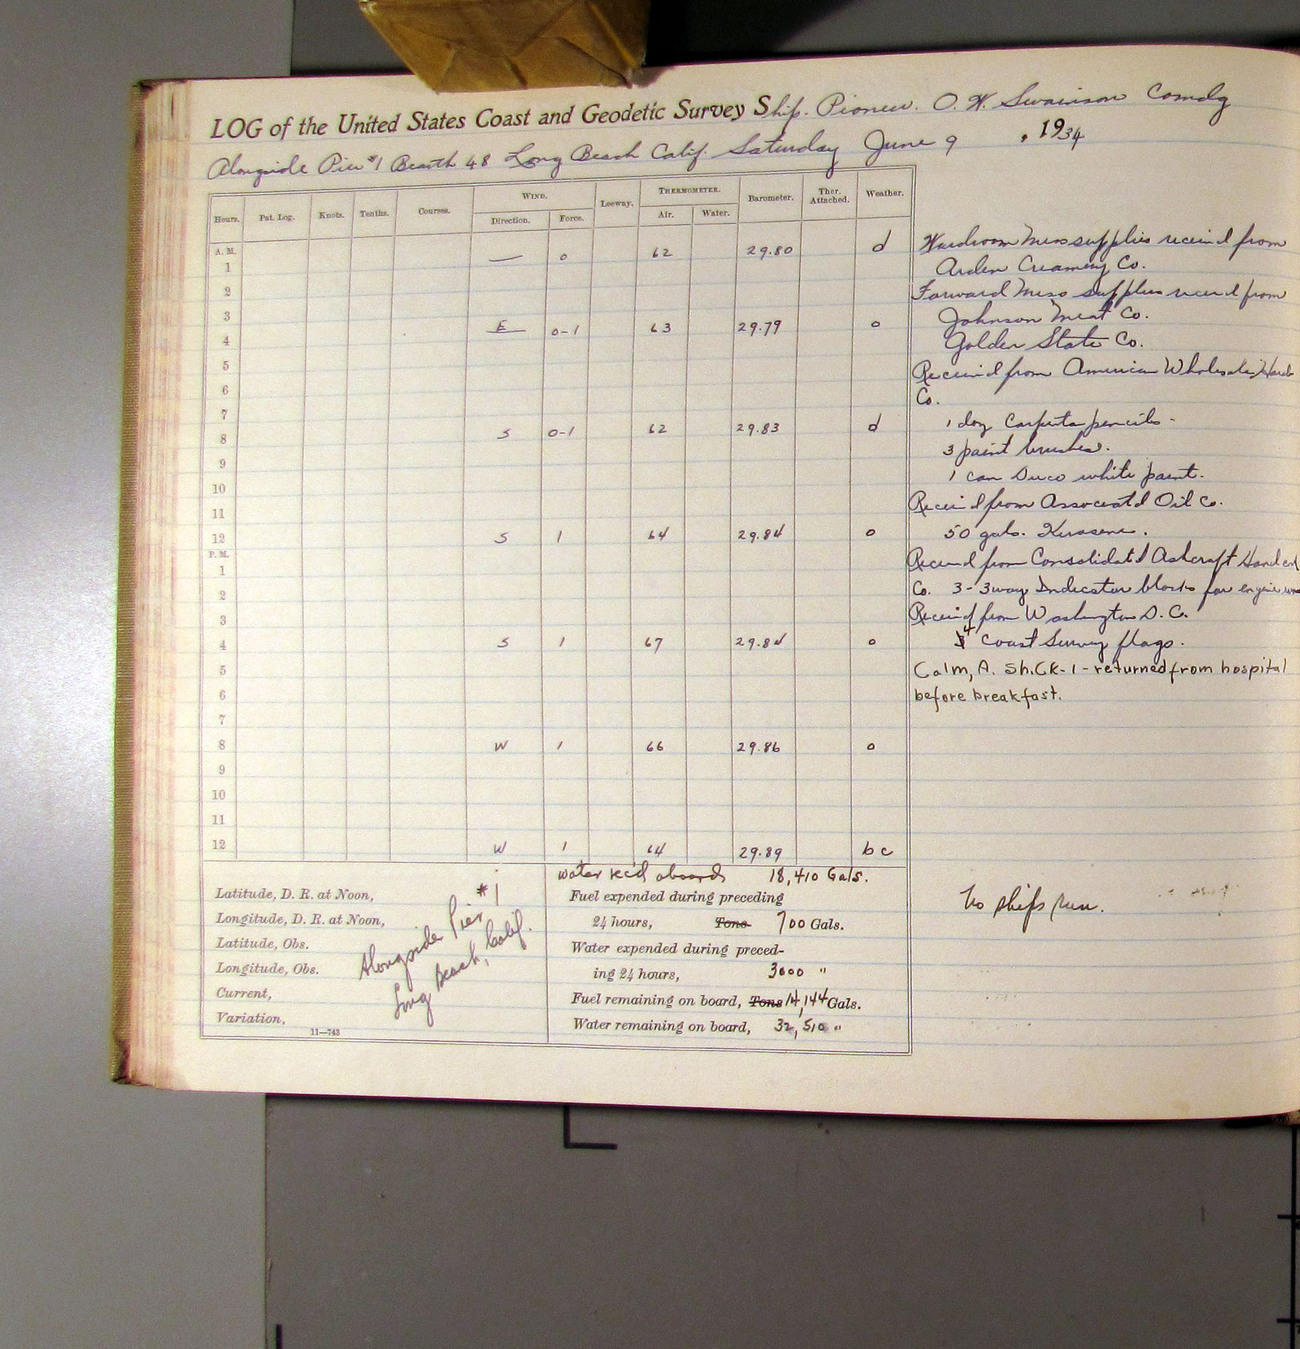 LOG of the United States Coast and Geodetic Survey Ship. Pioneer. O. W. Swainson Comdg
Alongside Pier #1 Bearth 48 Long Beach Calif. Saturday June 9, 1934
Hours. Pat. Log. Knots. Tenths. Courses. WIND. Leeway. THERMOMETER. Barometer. Ther. Attached. Weather.
Direction. Force. Air. Water.
A. M. — 0 62 29.80 d
1
2
3
E 0-1 63 29.79 o
4
5
6
7
8 S 0-1 62 29.83 d
9
10
11
12 S 1 64 29.84 o
P. M.
1
2
3
4 S 1 67 29.84 o
5
6
7
8 W 1 66 29.86 o
9
10
11
12 W 1 64 29.89 bc
Wardroom Mess supplies received from
Arden Creamery Co.
Forward Mess supplies received from
Johnson Meat Co.
Golden State Co.
Received from American Wholesale
Co.
1 doz Carpenter pencils -
3 paint brushes.
1 can Duco white paint.
Received from Associated Oil Co.
50 gals. Kerosene.
Received from Consolidated Ashcroft
Co. 3-3way Indicator blocks for engine
Received from Washington D.C.
4 Coast Survey flags.
Calm, A. Sh.Ck-1 - returned from hospital
before breakfast.
No ships run.
Latitude, D. R. at Noon,
Longitude, D. R. at Noon,
Latitude, Obs.
Longitude, Obs.
Current,
Variation,
11—743
Alongside Pier #1
Long Beach, Calif.
water rec'd aboard 18,410 Gals.
Fuel expended during preceding
24 hours, Tons 700 Gals.
Water expended during preced-
ing 24 hours, 3000 "
Fuel remaining on board, Tons 14,144 Gals.
Water remaining on board, 32,510 "